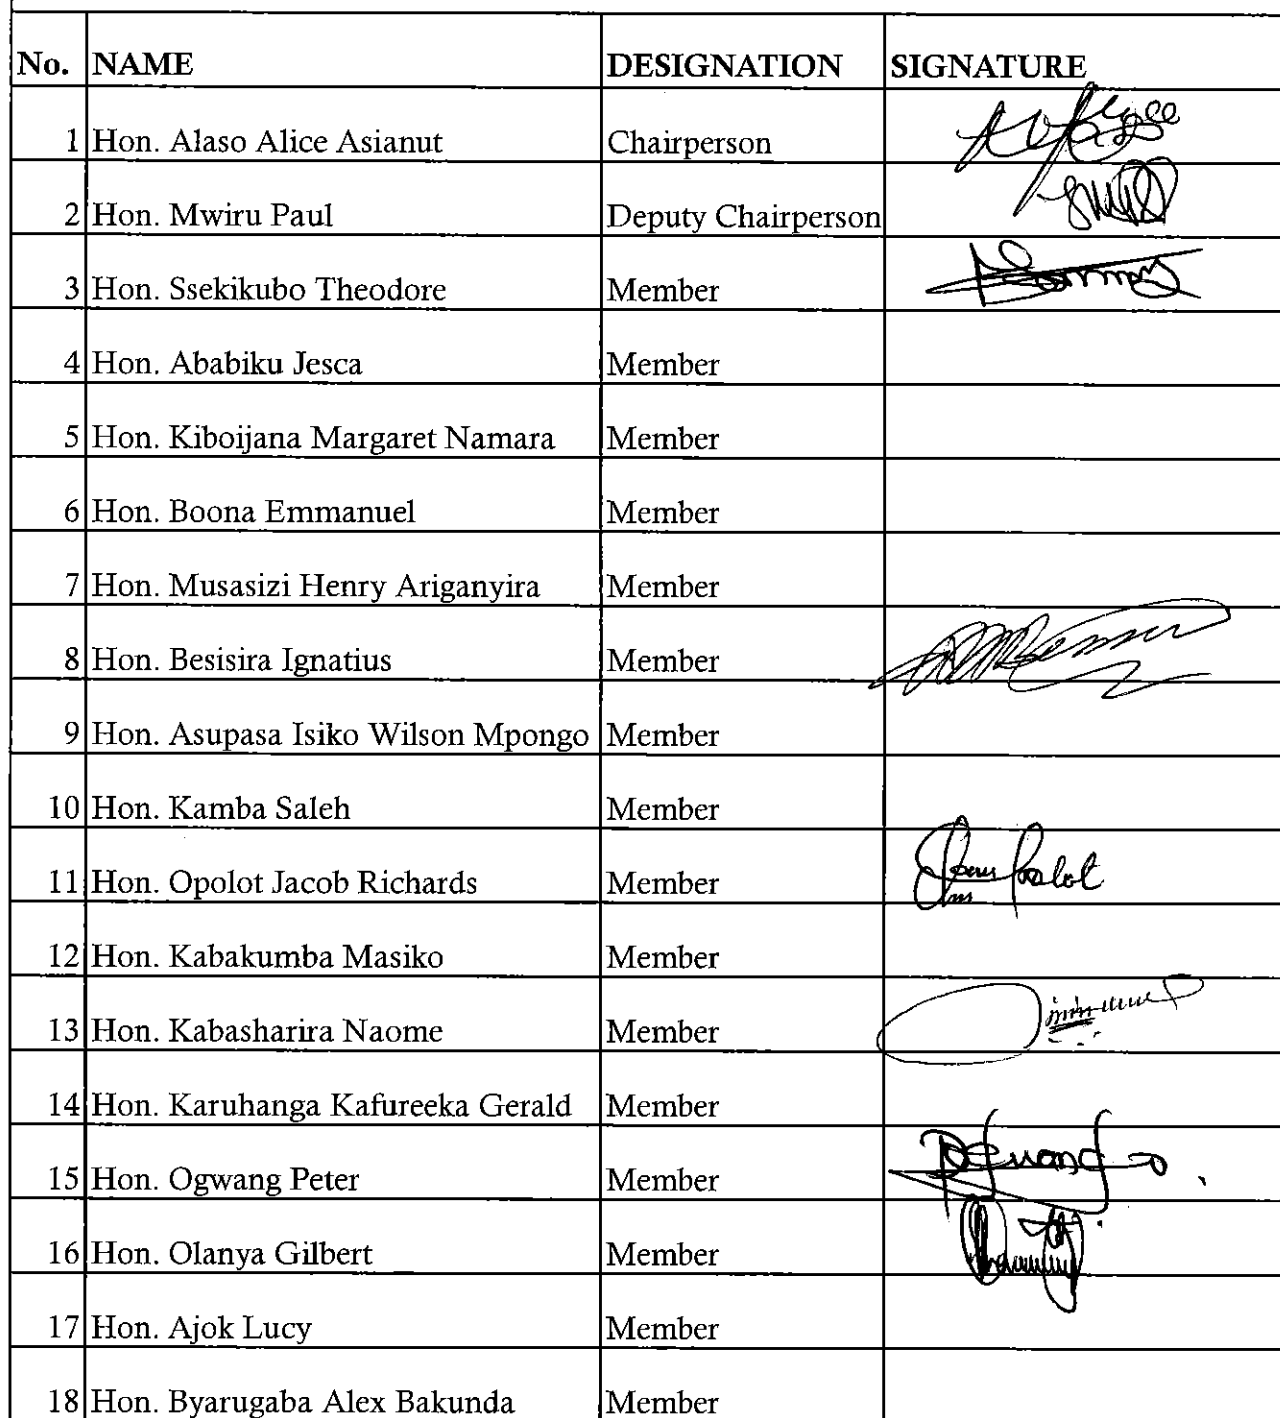 No. NAME DESIGNATION SIGNATURE
1 Hon. Alaso Alice Asianut Chairperson
2 Hon. Mwiru Paul Deputy Chairperson
3 Hon. Ssekikubo Theodore Member
4 Hon. Ababiku Jesca Member
5 Hon. Kiboijana Margaret Namara Member
6 Hon. Boona Emmanuel Member
7 Hon. Musasizi Henry Ariganyira Member
8 Hon. Besisira Ignatius Member
9 Hon. Asupasa Isiko Wilson Mpongo Member
10 Hon. Kamba Saleh Member
11 Hon. Opolot Jacob Richards Member
12 Hon. Kabakumba Masiko Member
13 Hon. Kabasharira Naome Member
14 Hon. Karuhanga Kafureeka Gerald Member
15 Hon. Ogwang Peter Member
16 Hon. Olanya Gilbert Member
17 Hon. Ajok Lucy Member
18 Hon. Byarugaba Alex Bakunda Member